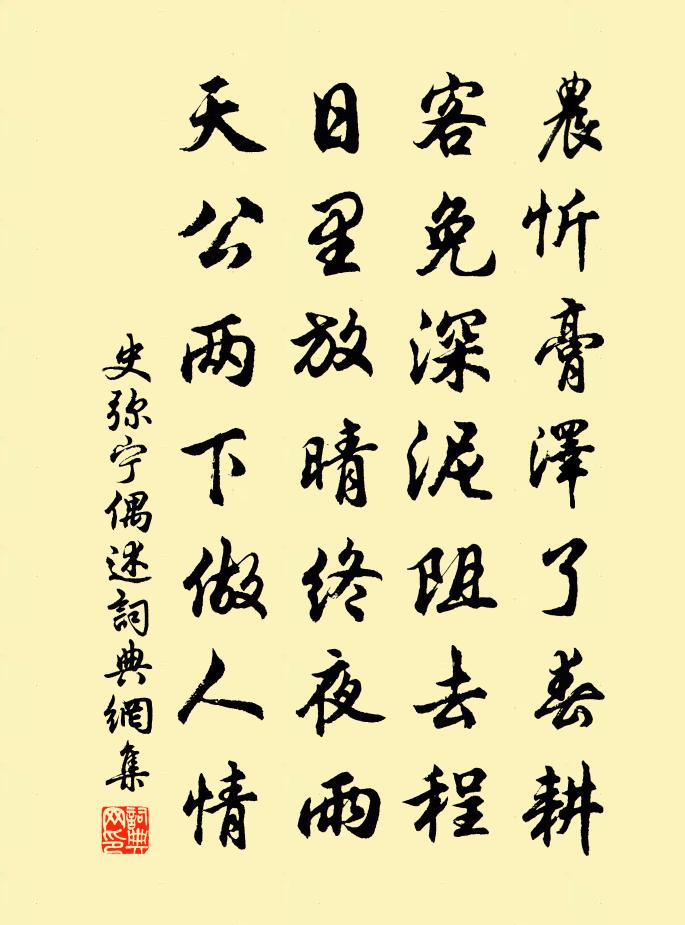 農忻膏澤了春耕
客免深泥阻去程
日里放晴终夜雨
天公两下做人情
史弥宁偶述詞典網集
詞典網印